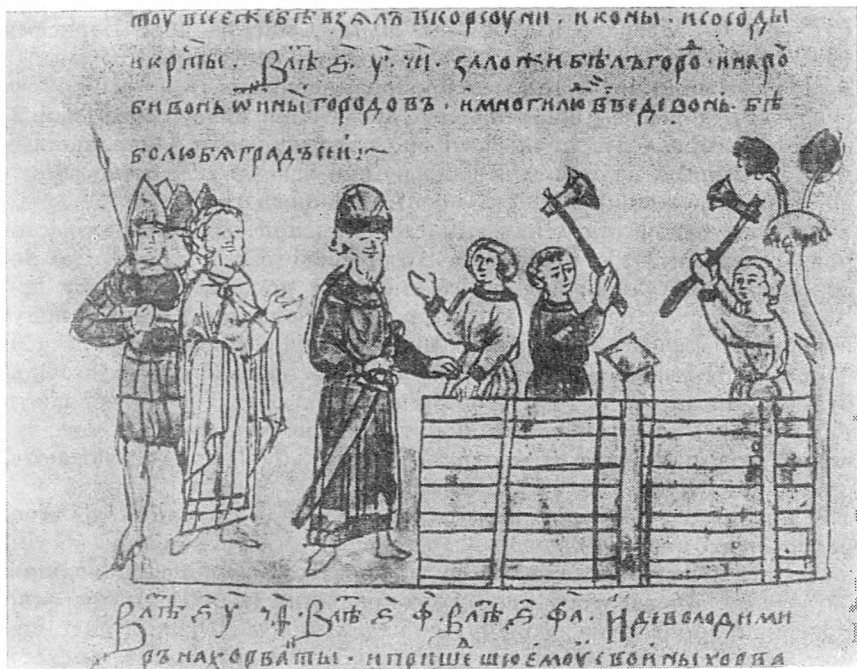 тоу все еже бѣ взѧлъ в корсоуни . иконы . и сосоды
и крⷭ҇ты . В лⷮѣ ҂ѕ҃ . у҃ . чи҃ . заложи бѣлъгороⷣ . и наро
би вонь ѿ иныⷯ городовъ . и много люⷣ введе вонь . бѣ
бо любѧ градъ сеи :~
В лⷮѣ ҂ѕ҃ у҃ чѳ҃ . В лⷮѣ ҂ѕ҃ ф҃ . В лⷮѣ ҂ѕ҃ фа҃ . Иде володими
ръ на хорваты . и пришеⷣшю ємоу с воины хорва